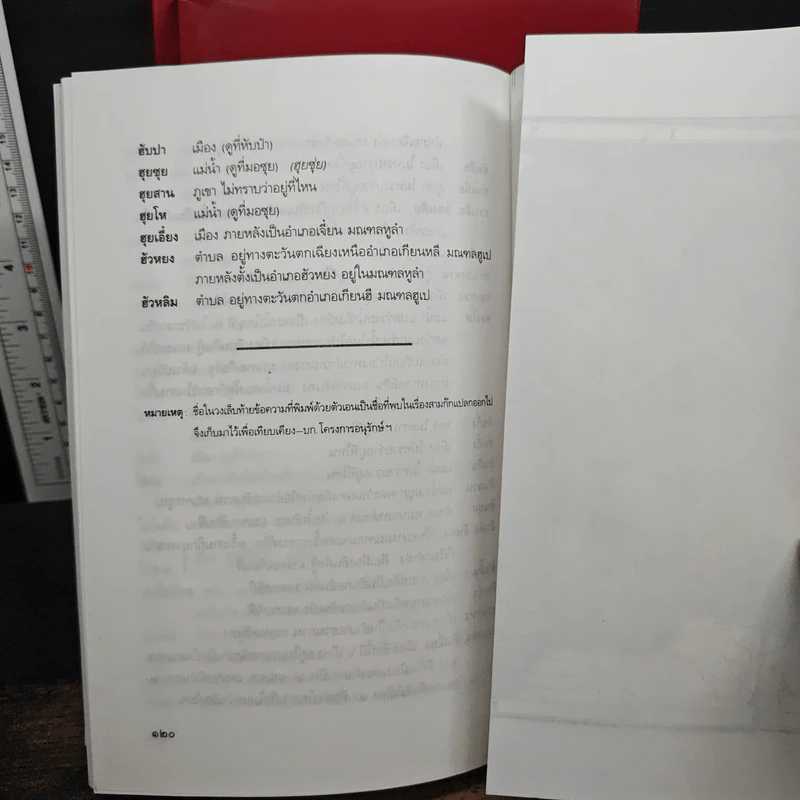 ฮับปา เมือง (ดูที่หับป๋า)
ฮุยซุย แม่น้ำ (ดูที่มอซุย) (ฮุยซุ่ย)
ฮุยสาน ภูเขา ไม่ทราบว่าอยู่ที่ไหน
ฮุยโห แม่น้ำ (ดูที่มอซุย)
ฮุยเอี๋ยง เมือง ภายหลังเป็นอำเภอเจี่ยน มณฑลหูลำ
ฮัวหยง ตำบล อยู่ทางตะวันตกเฉียงเหนืออำเภอเกียนหลี มณฑลฮูเป
ภายหลังตั้งเป็นอำเภอฮัวหยง อยู่ในมณฑลหูลำ
ฮัวหลิม ตำบล อยู่ทางตะวันตกอำเภอเกียนฮี มณฑลฮูเป
หมายเหตุ : ชื่อในวงเล็บท้ายข้อความที่พิมพ์ด้วยตัวเอนเป็นชื่อที่พบในเรื่องสามก๊กแปลกออกไป
จึงเก็บมาไว้เพื่อเทียบเคียง—บก. โครงการอนุรักษ์ฯ
๑๒๐
3
4
5